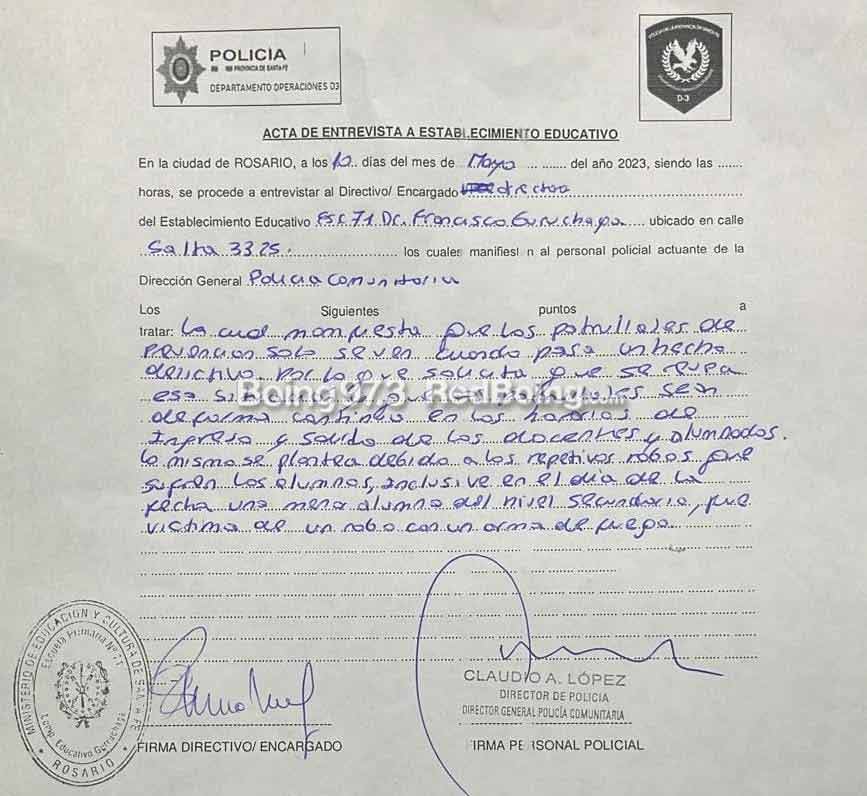 POLICIA
PROVINCIA DE SANTA FE
DEPARTAMENTO OPERACIONES D3
D-3
ACTA DE ENTREVISTA A ESTABLECIMIENTO EDUCATIVO
En la ciudad de ROSARIO, a los 10 días del mes de Mayo del año 2023, siendo las
horas, se procede a entrevistar al Directivo/ Encargado directora
del Establecimiento Educativo Esc 71 Dr. Francisco Gurruchaga ubicado en calle
Salta 3325. los cuales manifiesn al personal policial actuante de la
Dirección General Policia Comunitaria
Los Siguientes puntos a
tratar: La cual manifiesta que los patrulleros de
prevencion solo se ven cuando pasa un hecho
delictivo. Por lo que solicita que se
esa ... sean
Boing973 RedBoing.com
de forma continua en los horarios de
Ingreso y salida de los docentes y alumnados.
lo mismo se plantea debido a los repetivos robos que
sufren los alumnos, inclusive en el día de la
fecha una menor alumna del nivel secundario, fue
victima de un robo con un arma de fuego
MINISTERIO DE EDUCACION Y CULTURA DE SANTA FE
Escuela Primaria N° 71
Comp. Educativo Gurruchaga
ROSARIO
CLAUDIO A. LÓPEZ
DIRECTOR DE POLICIA
DIRECTOR GENERAL POLICÍA COMUNITARIA
FIRMA DIRECTIVO/ ENCARGADO
IRMA PERSONAL POLICIAL